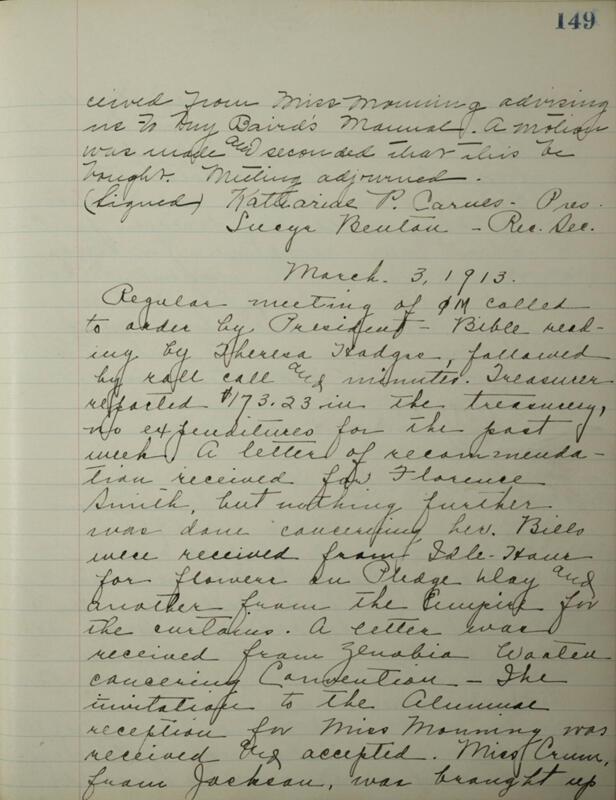 149
ceived from Miss Monning advising
us to buy Baird's Manual. A motion
was made and seconded that this be
bought. Meeting adjourned.
(Signed) Katharine P. Carnes - Pres.
Lucye Benton - Rec. Sec.
March. 3, 1913.
Regular meeting of ΦM called
to order by President - Bible read-
ing by Theresa Hodges, followed
by roll call and minutes. Treasurer
reported $173.23 in the treasurey,
no expenditures for the past
week. A letter of recommenda-
tion received for Florence
Smith, but nothing further
was done concerning her. Bills
were received from Idle-Hour
for flowers on Pledge Day and
another from the Empire for
the curtains. A letter was
received from Zenobia Wooten
concering Convention - The
invitation to the Alumnae
reception for Miss Monning was
received and accepted. Miss Crum,
from Jackson, was brought up